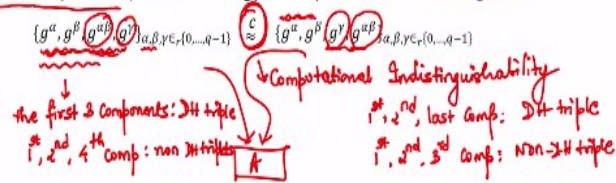 {g^α, g^β, g^{αβ}, g^γ}_{α,β,γ∈_r{0,…,q−1}} ≈^c {g^α, g^β, g^γ, g^{αβ}}_{α,β,γ∈_r{0,…,q−1}}
Computational Indistinguishability
the first 3 Components: DH triple
1st, 2nd, 4th Comp: non DH triple
A
1st, 2nd, last Comp: DH triple
1st, 2nd, 3rd Comp: Non-DH triple